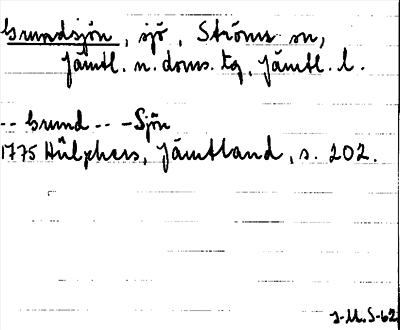 Grundsjön, sjö, Ströms sn,
Jämtl. n. doms. tg, Jämtl. l.
-- Grund -- -Sjön
1775 Hülphers, Jämtland, s. 202.
J-M.S-62